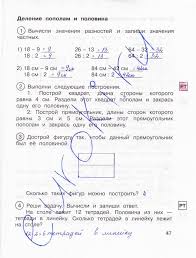 Деление пополам и половина
1 Вычисли значения разностей и запиши значения
частных.
1) 18 – 9 = 9 26 – 13 = 13 64 – 32 = 32
18 : 2 = 9 26 : 2 = 13 64 : 2 = 32
2) 18 см – 9 см = 84 см – 42 см =
18 см : 2 = 84 см : 2 =
2 Выполни следующие построения.
1. Построй квадрат, длина стороны которого
равна 4 см. Раздели этот квадрат пополам и закрась
одну его половину.
2. Построй прямоугольник, длины сторон которого
равны 3 см и 2 см. Раздели этот прямоугольник пополам
и закрась одну его половину.
РТ
3 Дострой фигуру так, чтобы данный прямоугольник
был её половиной.
Сколько таких фигур можно построить?
4 Реши задачу. Вычисли и запиши ответ.
РТ
На столе лежит 12 тетрадей. Половина из них —
тетради в линейку. Сколько тетрадей в линейку лежит
на столе?
47